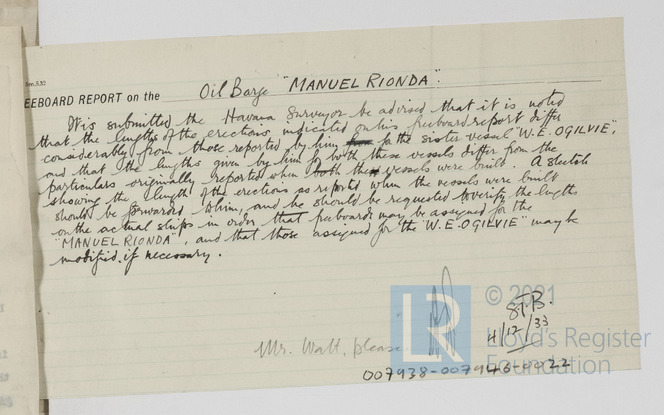 Sec. 5.32
EEBOARD REPORT on the Oil Barge "MANUEL RIONDA".
It is submitted the Havana Surveyor be advised that it is noted
that the lengths of the erections indicated on his freeboard report differ
considerably from those reported by him for the sister vessel "W.E. OGILVIE",
and that the lengths given by him for both these vessels differ from the
particulars originally reported when both these vessels were built. A sketch
showing the length of the erections as reported when the vessels were built
should be forwarded to him, and he should be requested to verify the lengths
on the actual ships in order that freeboards may be assigned for the
"MANUEL RIONDA", and that those assigned for the "W.E. OGILVIE" may be
modified if necessary.
© 2021
Lloyd's Register
Foundation
LR
4/12/33
Mr. Watt, please
007938-007946-0022